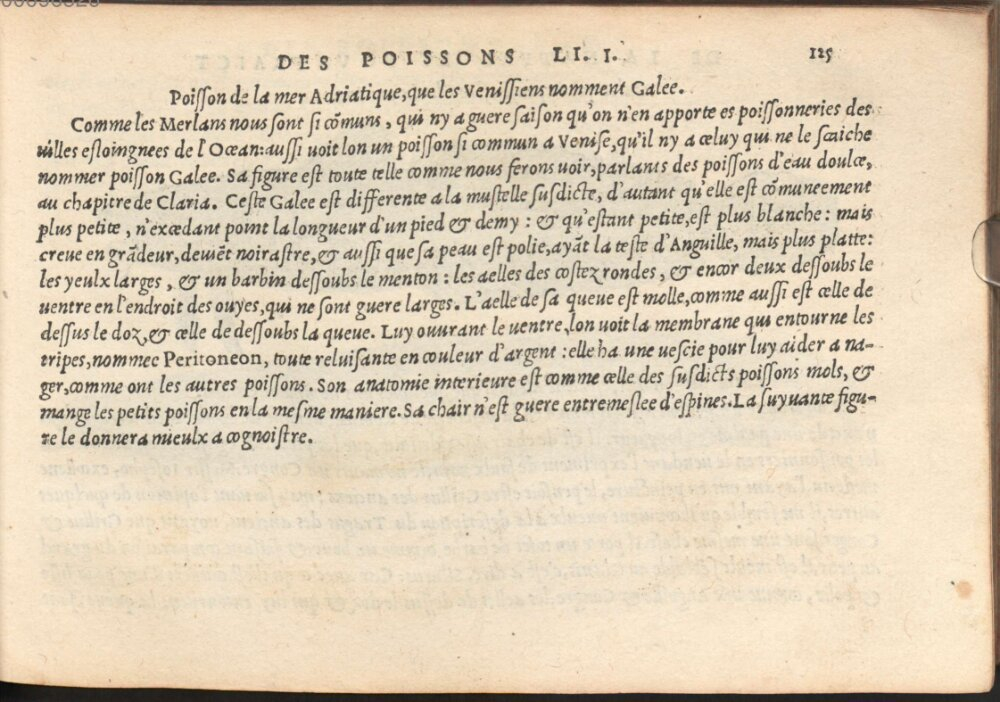 DES POISSONS LI. I. 125
Poiſſon de la mer Adriatique, que les Veniſſiens nomment Galee.
Comme les Merlans nous ſont ſi cõmuns, qui ny a guere ſaiſon qu'on n'en apporte es poiſſonneries des
uilles eſloingnees de l'Ocean: auſſi uoit lon un poiſſon ſi commun a Veniſe, qu'il ny a celuy qui ne le ſcaiche
nommer poiſſon Galee. Sa figure eſt toute telle comme nous ferons uoir, parlants des poiſſons d'eau doulce,
au chapitre de Claria. Ceſte Galee eſt differente a la muſtelle ſuſdicte, d'autant qu'elle eſt cõmuneement
plus petite, n'excedant point la longueur d'un pied & demy: & qu'eſtant petite, eſt plus blanche: mais
creue en grãdeur, deuiẽt noiraſtre, & auſſi que ſa peau eſt polie, ayãt la teſte d'Anguille, mais plus platte:
les yeulx larges, & un barbin deſſoubs le menton: les aelles des coſtez rondes, & encor deux deſſoubs le
uentre en l'endroit des ouyes, qui ne ſont guere larges. L'aelle de ſa queue eſt molle, comme auſſi eſt celle de
deſſus le doz, & celle de deſſoubs la queue. Luy ouurant le uentre, lon uoit la membrane qui entourne les
tripes, nommee Peritoneon, toute reluiſante en couleur d'argent: elle ha une ueſcie pour luy aider a na-
ger, comme ont les autres poiſſons. Son anatomie interieure eſt comme celle des ſuſdicts poiſſons mols, &
mange les petits poiſſons en la meſme maniere. Sa chair n'eſt guere entremeſlee d'eſpines. La ſuyuante figu-
re le donnera mieulx a cognoiſtre.